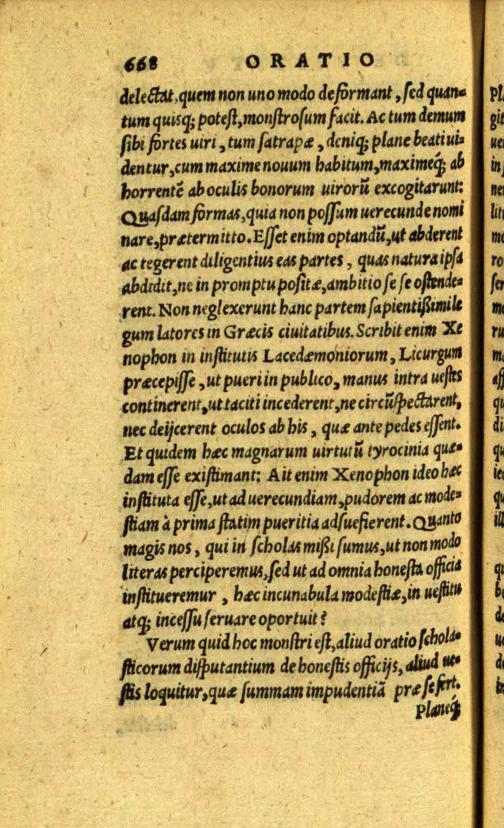 668 ORATIO
delectat, quem non uno modo deformant, sed quan=
tum quisq; potest, monstrosum facit. Ac tum demum
sibi fortes uiri, tum satrapæ, deniq; plane beati ui=
dentur, cum maxime nouum habitum, maximeq́; ab
horrentẽ ab oculis bonorum uirorũ excogitarunt:
Quasdam formas, quia non possum uerecunde nomi
nare, prætermitto. Esset enim optandũ, ut abderent
ac tegerent diligentius eas partes, quas natura ipsa
abdidit, ne in promptu positæ, ambitio se se ostende=
rent. Non neglexerunt hanc partem sapientißimi le
gum latores in Græcis ciuitatibus. Scribit enim Xe
nophon in institutis Lacedæmoniorum, Licurgum
præcepisse, ut pueri in publico, manus intra uestes
continerent, ut taciti incederent, ne circũspectarent,
nec deijcerent oculos ab his, quæ ante pedes essent.
Et quidem hæc magnarum uirtutũ tyrocinia quæ=
dam esse existimant: Ait enim Xenophon ideo hæc
instituta esse, ut ad uerecundiam, pudorem ac mode=
stiam à prima statim pueritia adsuefierent. Quanto
magis nos, qui in scholas mißi sumus, ut non modo
literas perciperemus, sed ut ad omnia honesta officia
institueremur, hæc incunabula modestiæ, in uestitu
atq; incessu seruare oportuit?
Verum quid hoc monstri est, aliud oratio schola=
sticorum disputantium de honestis officijs, aliud ue=
stis loquitur, quæ summam impudentiã præ se fert.
Planeq́;